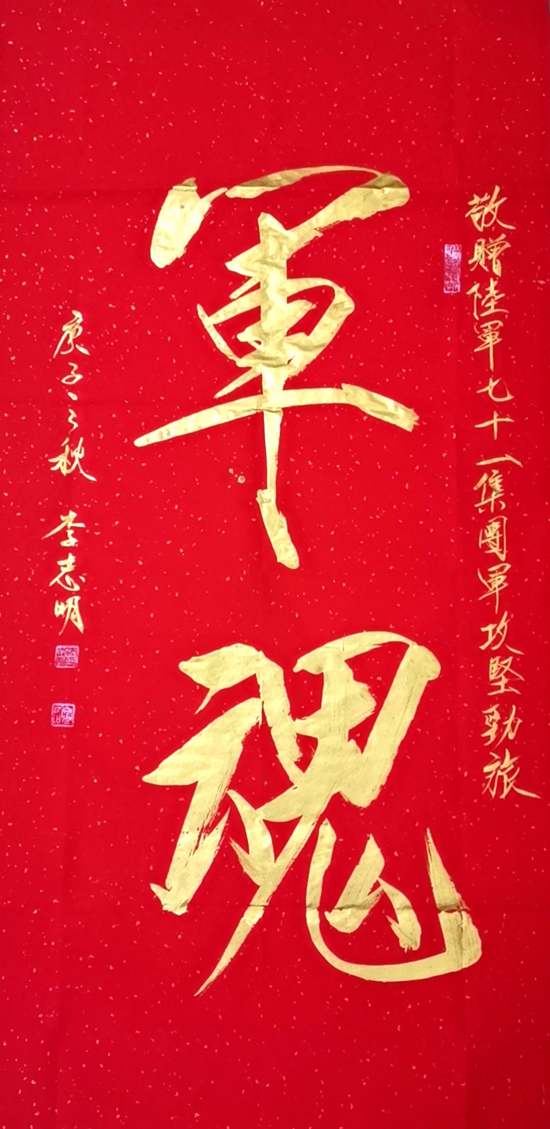 敬贈陸軍七十一集團軍攻堅勁旅
軍魂
庚子之秋 李志明